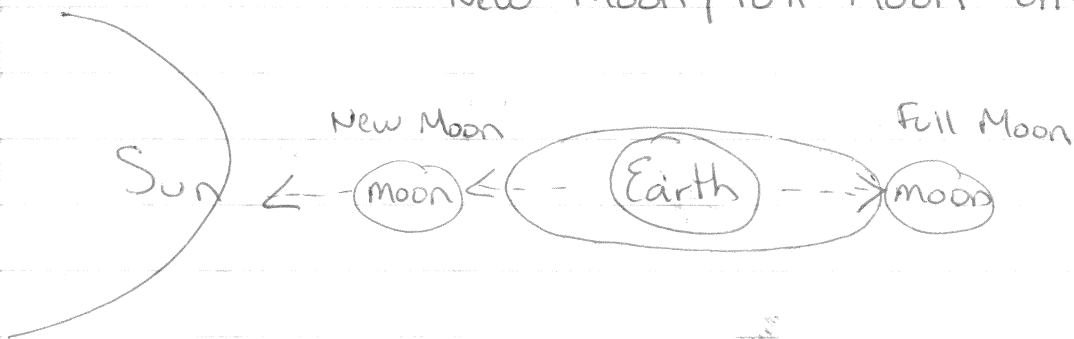 New Moon / Full Moon
New Moon
Full Moon
Sun
moon
Earth
moon